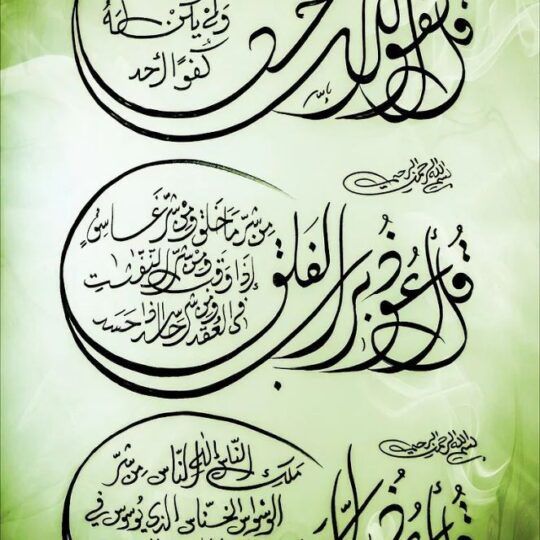 ولم يكن له
كفوا أحد
قل هو الله أحد
بسم الله الرحمن الرحيم
قل أعوذ برب الفلق
مِن شرِّ مَا خَلق ومن شرِّ غَاسقٍ
إذا وقب ومن شر النَّفّٰثٰت
في العُقَد ومن شر حاسد إذا حسد
بسم الله الرحمن الرحيم
قل أعوذ برب
ملك النَّاس إله النَّاس مِن شرِّ
الوسواس الخنَّاس الذي يُوَسْوس في